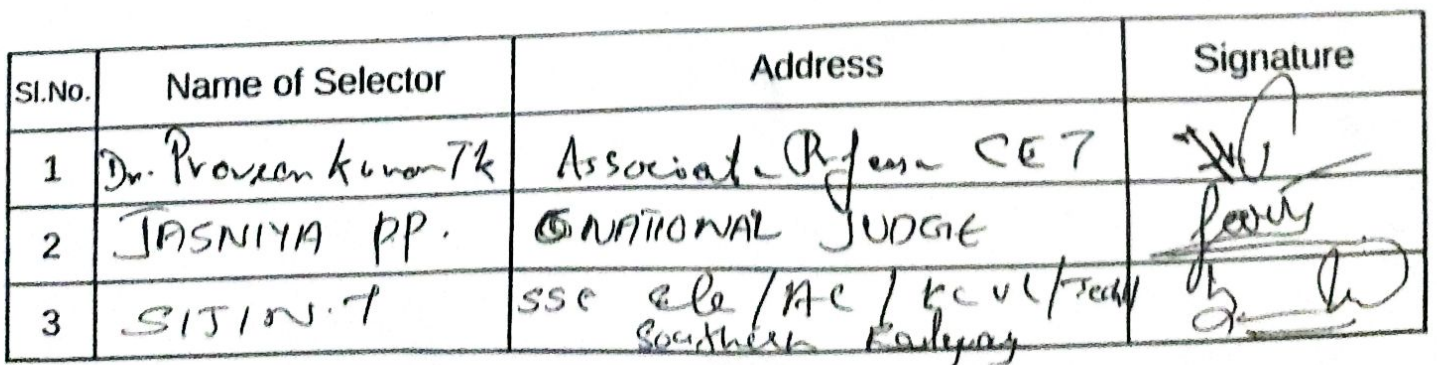 Sl.No. Name of Selector Address Signature
1 Dr. Praveen Kumar T k Associate Professor CET
2 JASNIYA P.P. NATIONAL JUDGE
3 SIJIN.T SSE ele/AC/KCVL/Tech/
Southern Railway